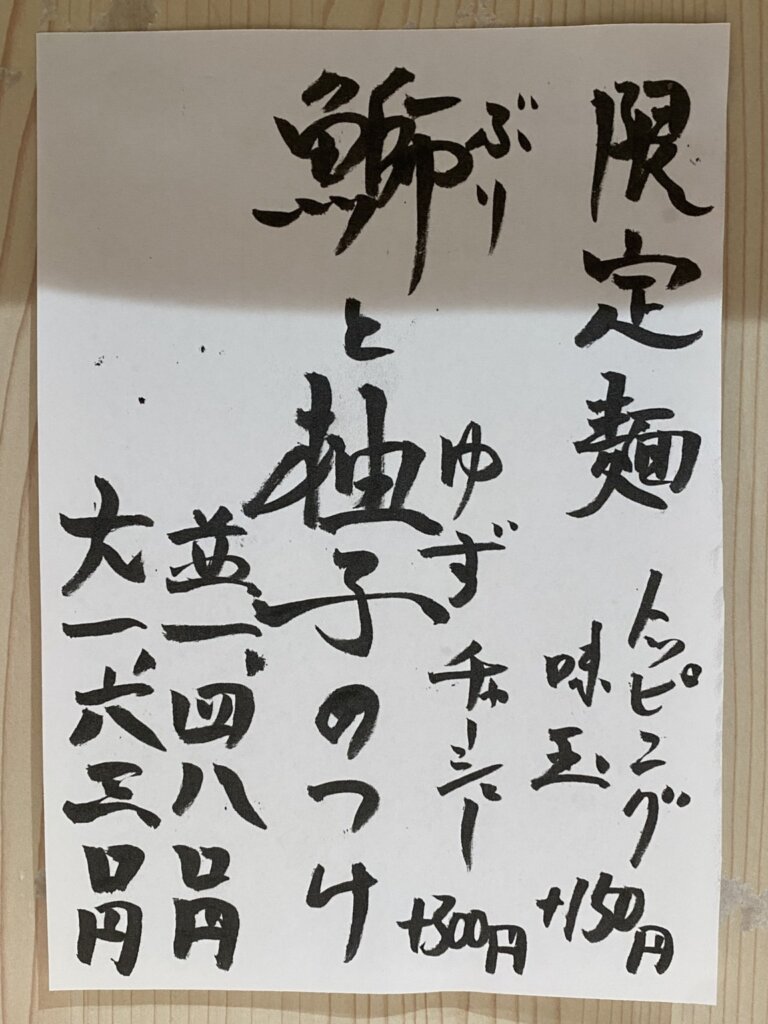 限定麺
トッピング
味玉 +150円
チャーシュー +300円
ぶり ゆず
鰤と柚子のつけ
並一、四八〇円
大一、六三〇円